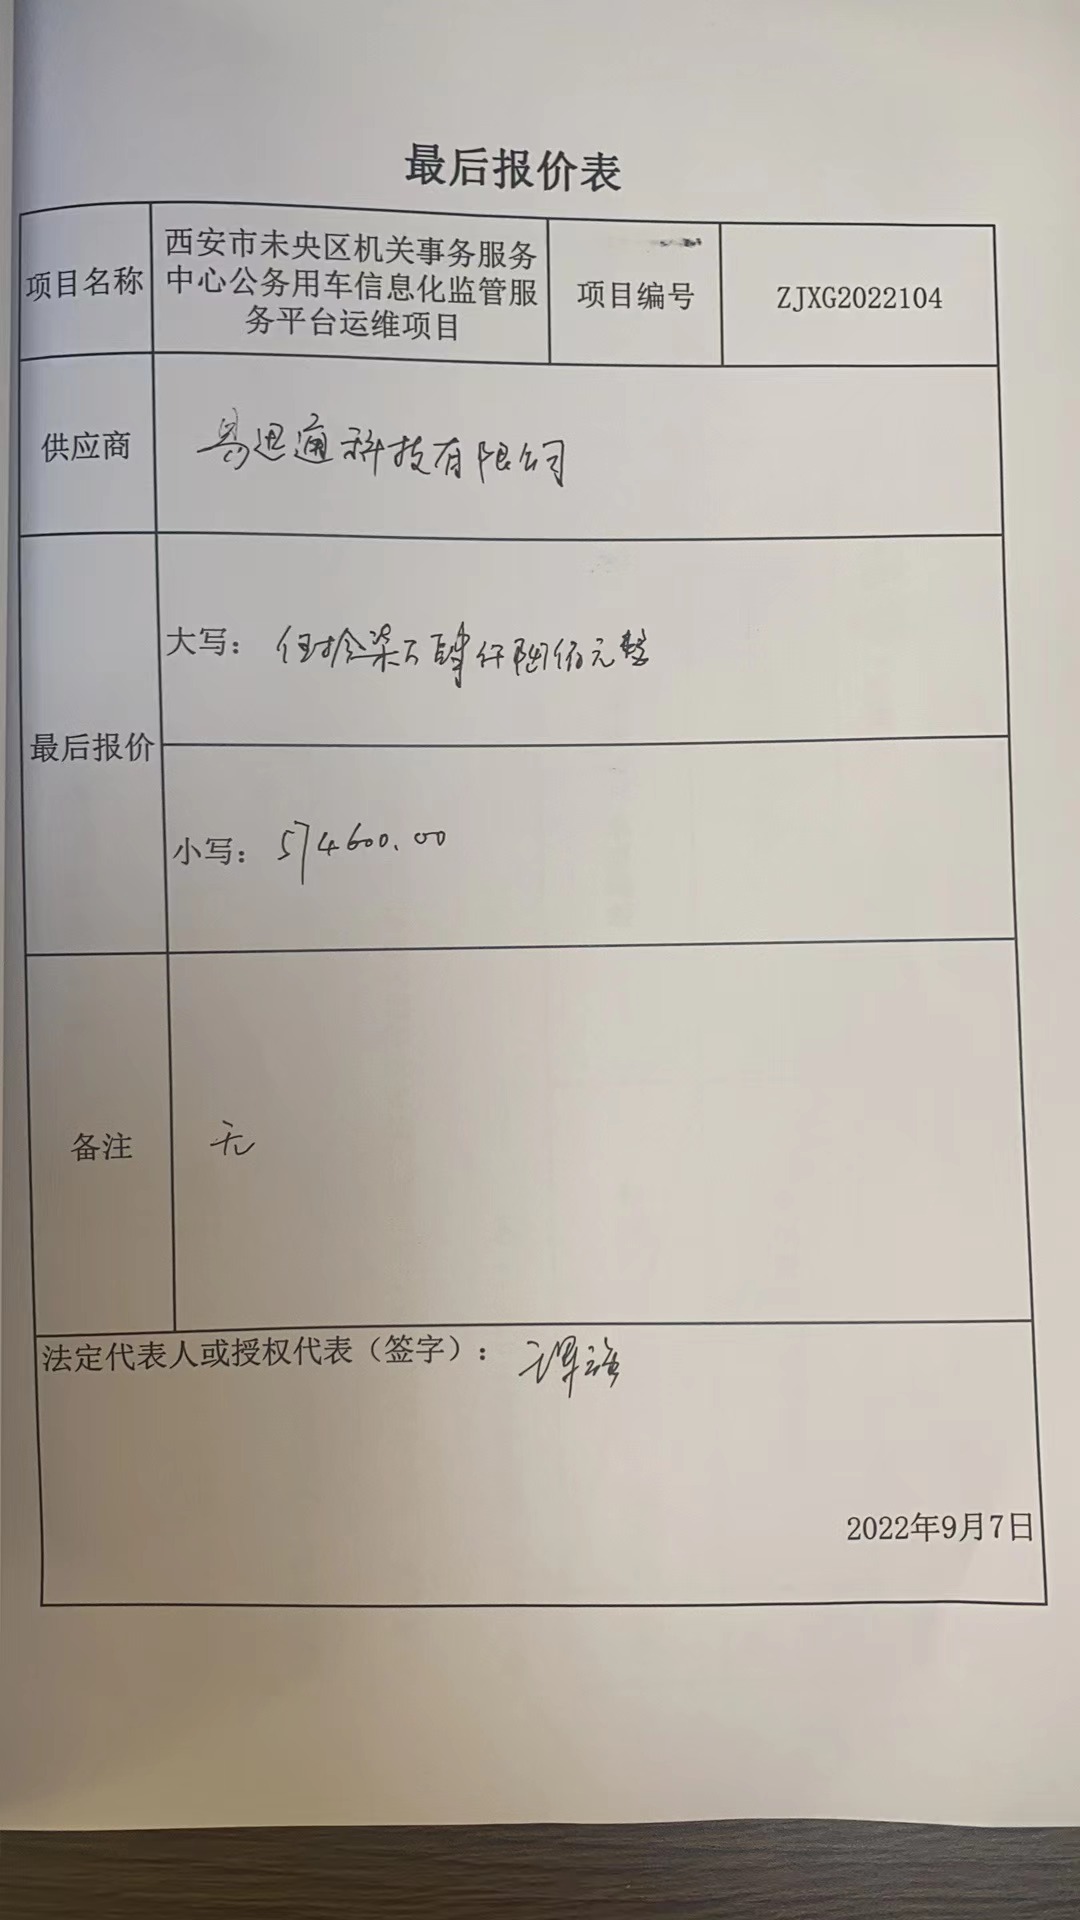 最后报价表
项目名称
西安市未央区机关事务服务
中心公务用车信息化监管服
务平台运维项目
项目编号
ZJXG2022104
供应商
易迅通科技有限公司
最后报价
大写：伍拾柒万肆仟陆佰元整
小写：574600.00
备注
无
法定代表人或授权代表（签字）：
2022年9月7日